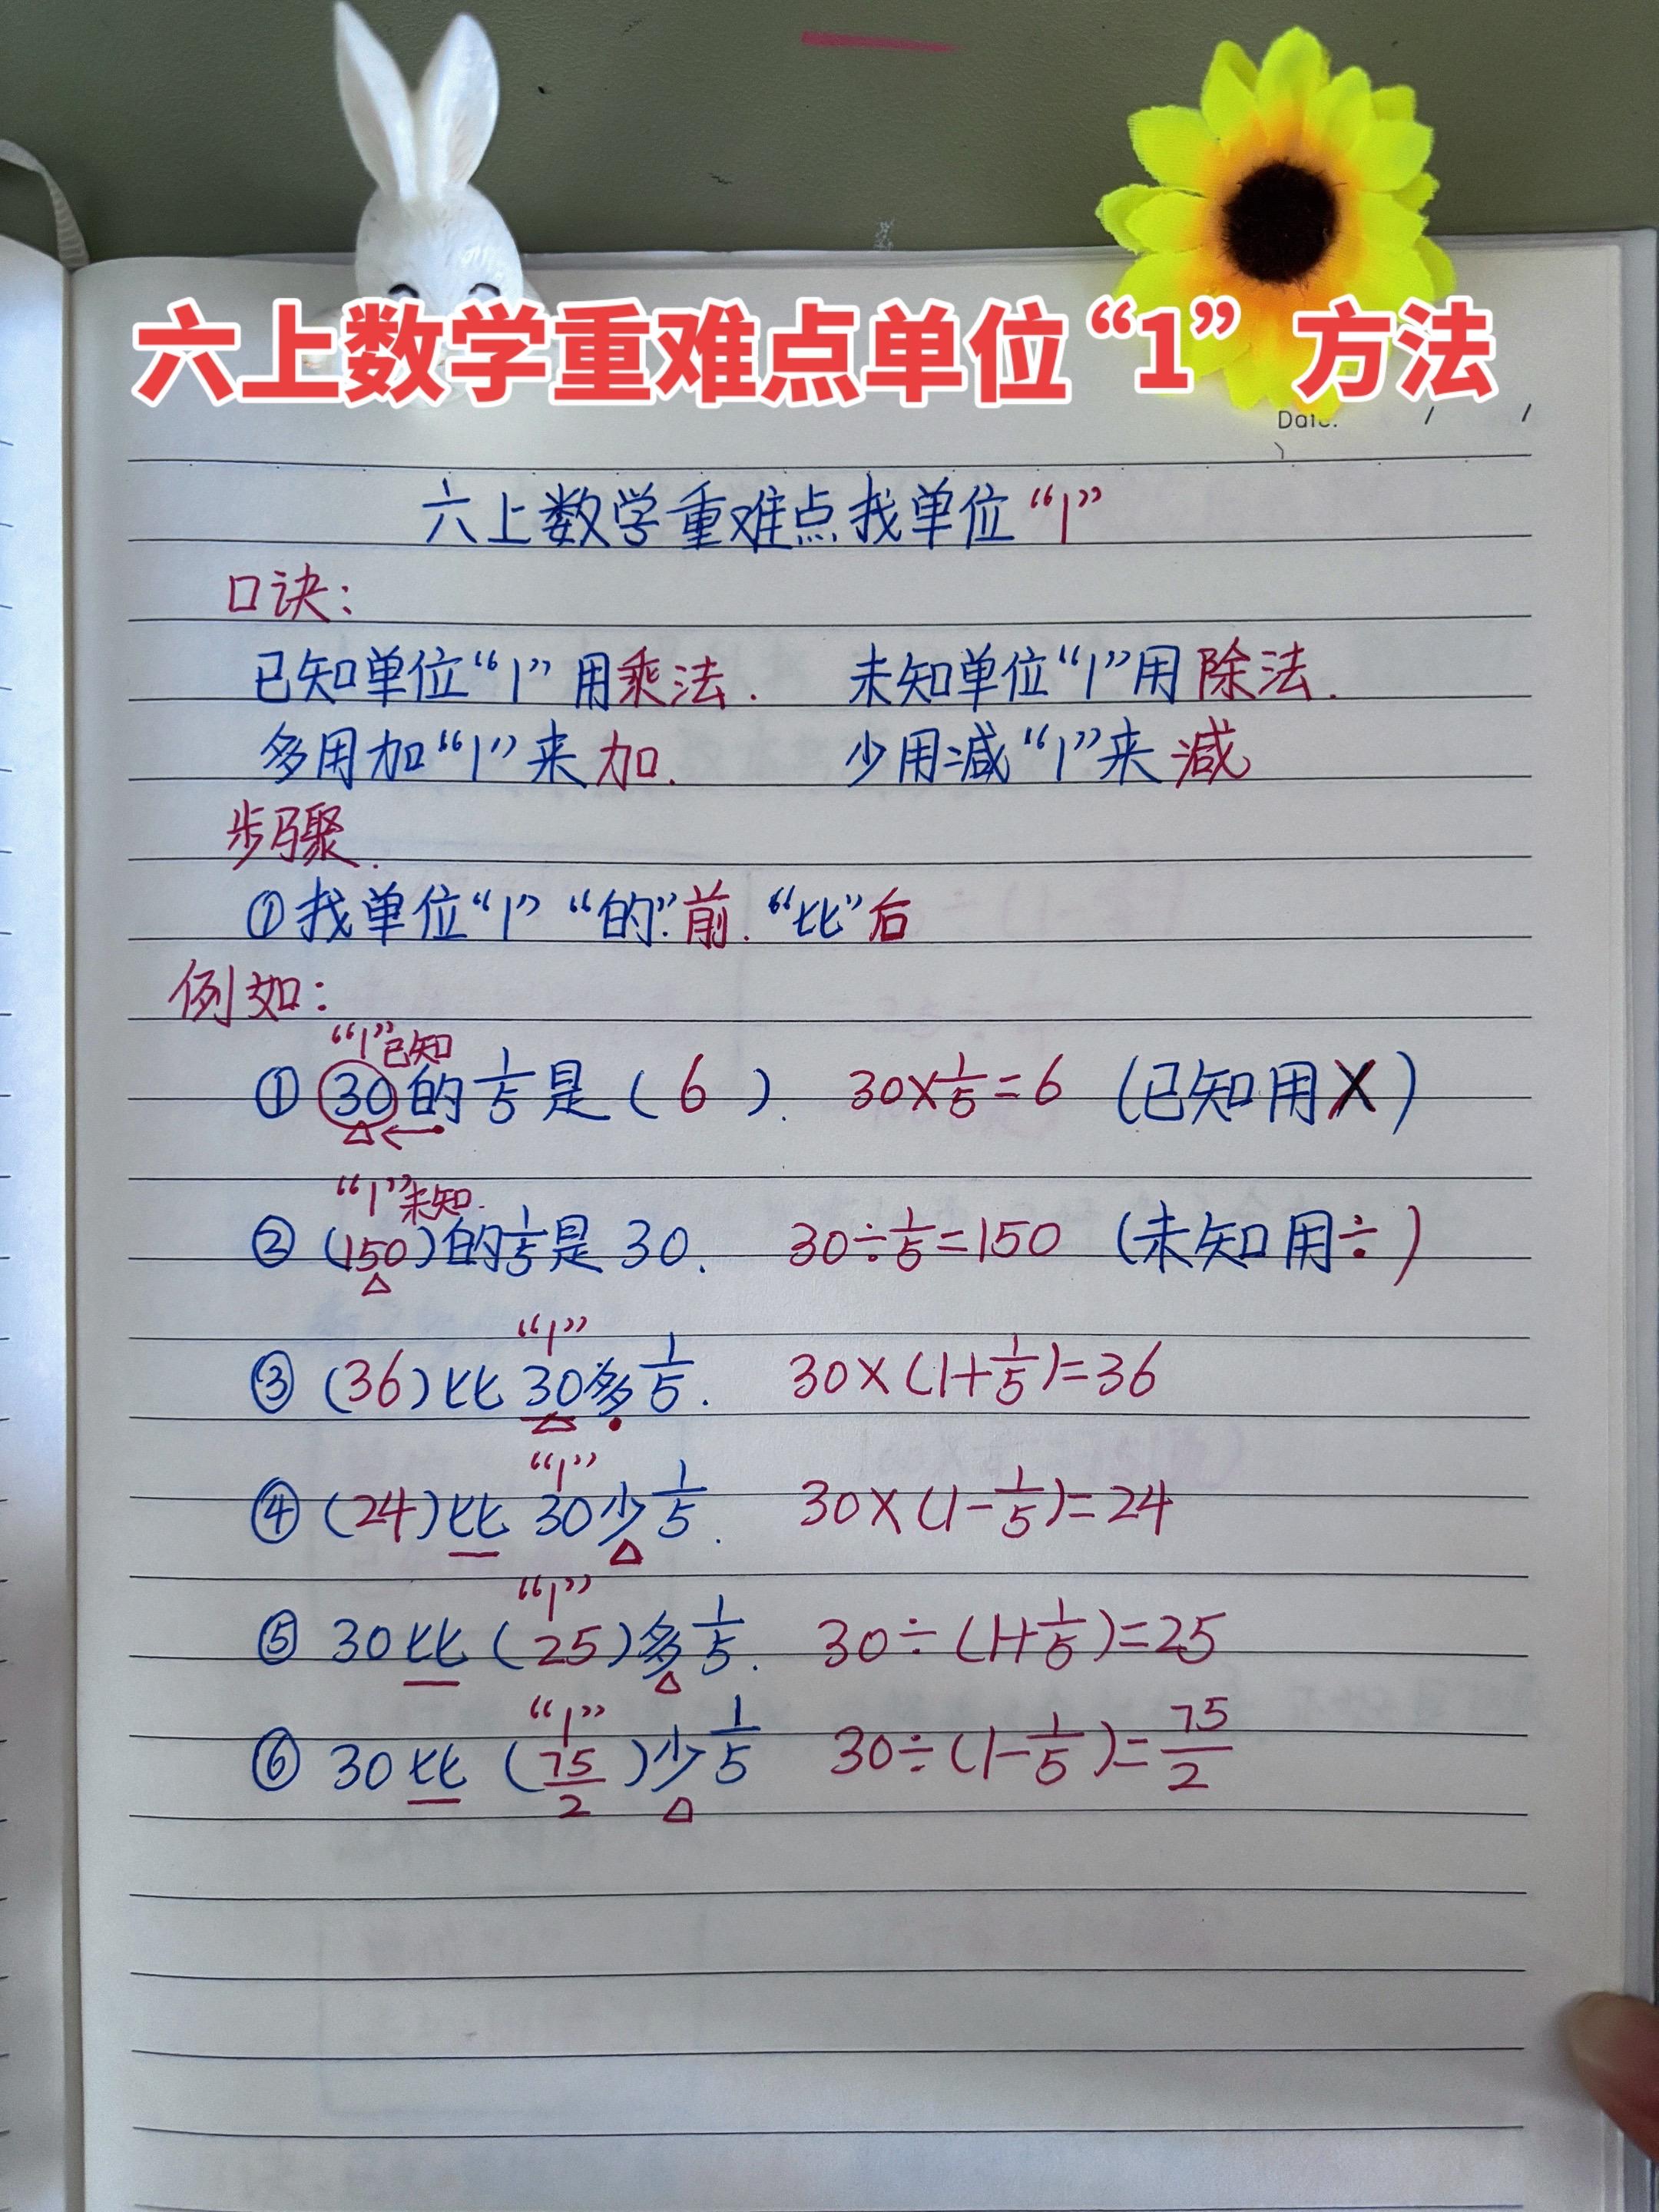 六上数学重难点单位“1”方法
Date: / /
六上数学重难点找单位“1”
口诀:
已知单位“1”用乘法. 未知单位“1”用除法.
多用加“1”来加. 少用减“1”来减
步骤.
①找单位“1” “的”前. “比”后
例如:
“1”已知
① 30的1/5是( 6 ). 30×1/5=6 (已知用X)
“1”未知.
② (150)的1/5是 30. 30÷1/5=150 (未知用÷)
“1”
③ (36)比 30多1/5. 30×(1+1/5)=36
“1”
④ (24)比 30少1/5. 30×(1-1/5)=24
“1”
⑤ 30比(25)多1/5. 30÷(1+1/5)=25
“1”
⑥ 30比 (75/2)少1/5 30÷(1-1/5)=75/2